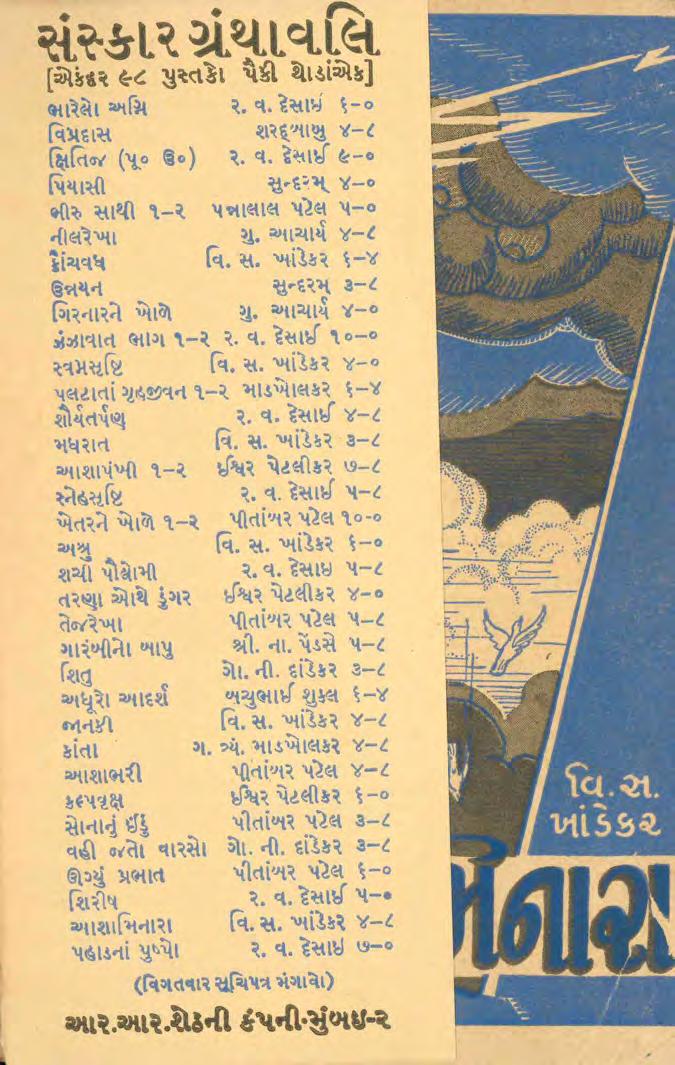 સંસ્કાર ગ્રંથાવલિ
[એકંદર ૯૮ પુસ્તકો પૈકી થોડાંએક]
ભારેલો અગ્નિ ર. વ. દેસાઇ ૬-૦
વિપ્રદાસ શરદ્‌બાબુ ૪-૮
ક્ષિતિજ (પૂ૦ ઉ૦) ર. વ. દેસાઈ ૯-૦
પિયાસી સુન્દરમ્ ૪-૦
ભીરુ સાથી ૧-૨ પન્નાલાલ પટેલ ૫-૦
નીલરેખા ગુ. આચાર્ય ૪-૮
ક્રૌંચવધ વિ. સ. ખાંડેકર ૬-૪
ઉન્નયન સુન્દરમ્ ૩-૮
ગિરનારને ખોળે ગુ. આચાર્ય ૪-૦
ઝંઝાવાત ભાગ ૧-૨ ર. વ. દેસાઈ ૧૦-૦
સ્વપ્નસૃષ્ટિ વિ. સ. ખાંડેકર ૪-૦
પલટાતાં ગૃહજીવન ૧-૨ માડખોલકર ૬-૪
શૌર્યતર્પણ ર. વ. દેસાઈ ૪-૮
મધરાત વિ. સ. ખાંડેકર ૩-૮
આશાપંખી ૧-૨ ઈશ્વર પેટલીકર ૭-૮
સ્નેહસૃષ્ટિ ર. વ. દેસાઈ ૫-૮
ખેતરને ખોળે ૧-૨ પીતાંબર પટેલ ૧૦-૦
અશ્રુ વિ. સ. ખાંડેકર ૬-૦
શચી પૌલોમી ર. વ. દેસાઇ ૫-૮
તરણા ઓથે ડુંગર ઈશ્વર પેટલીકર ૪-૦
તેજરેખા પીતાંબર પટેલ ૫-૮
ગારંબીનો બાપુ શ્રી. ના. પેંડસે ૫-૮
શિતુ ગો. ની. દાંડેકર ૩-૮
અધૂરો આદર્શ બચુભાઈ શુક્લ ૬-૪
જાનકી વિ. સ. ખાંડેકર ૪-૮
કાંતા ગ. ત્ર્યં. માડખોલકર ૪-૮
આશાભરી પીતાંબર પટેલ ૪-૮
કલ્પવૃક્ષ ઈશ્વર પેટલીકર ૬-૦
સોનાનું ઈંડું પીતાંબર પટેલ ૩-૮
વહી જતો વારસો ગો. ની. દાંડેકર ૩-૮
ઊગ્યું પ્રભાત પીતાંબર પટેલ ૬-૦
શિરીષ ર. વ. દેસાઈ ૫-૦
આશામિનારા વિ. સ. ખાંડેકર ૪-૮
પહાડનાં પુષ્પો ર. વ. દેસાઇ ૭-૦
(વિગતવાર સૂચિપત્ર મંગાવો)
આર.આર.શેઠની કંપની•મુંબઇ-૨
વિ. સ.
ખાંડેકર